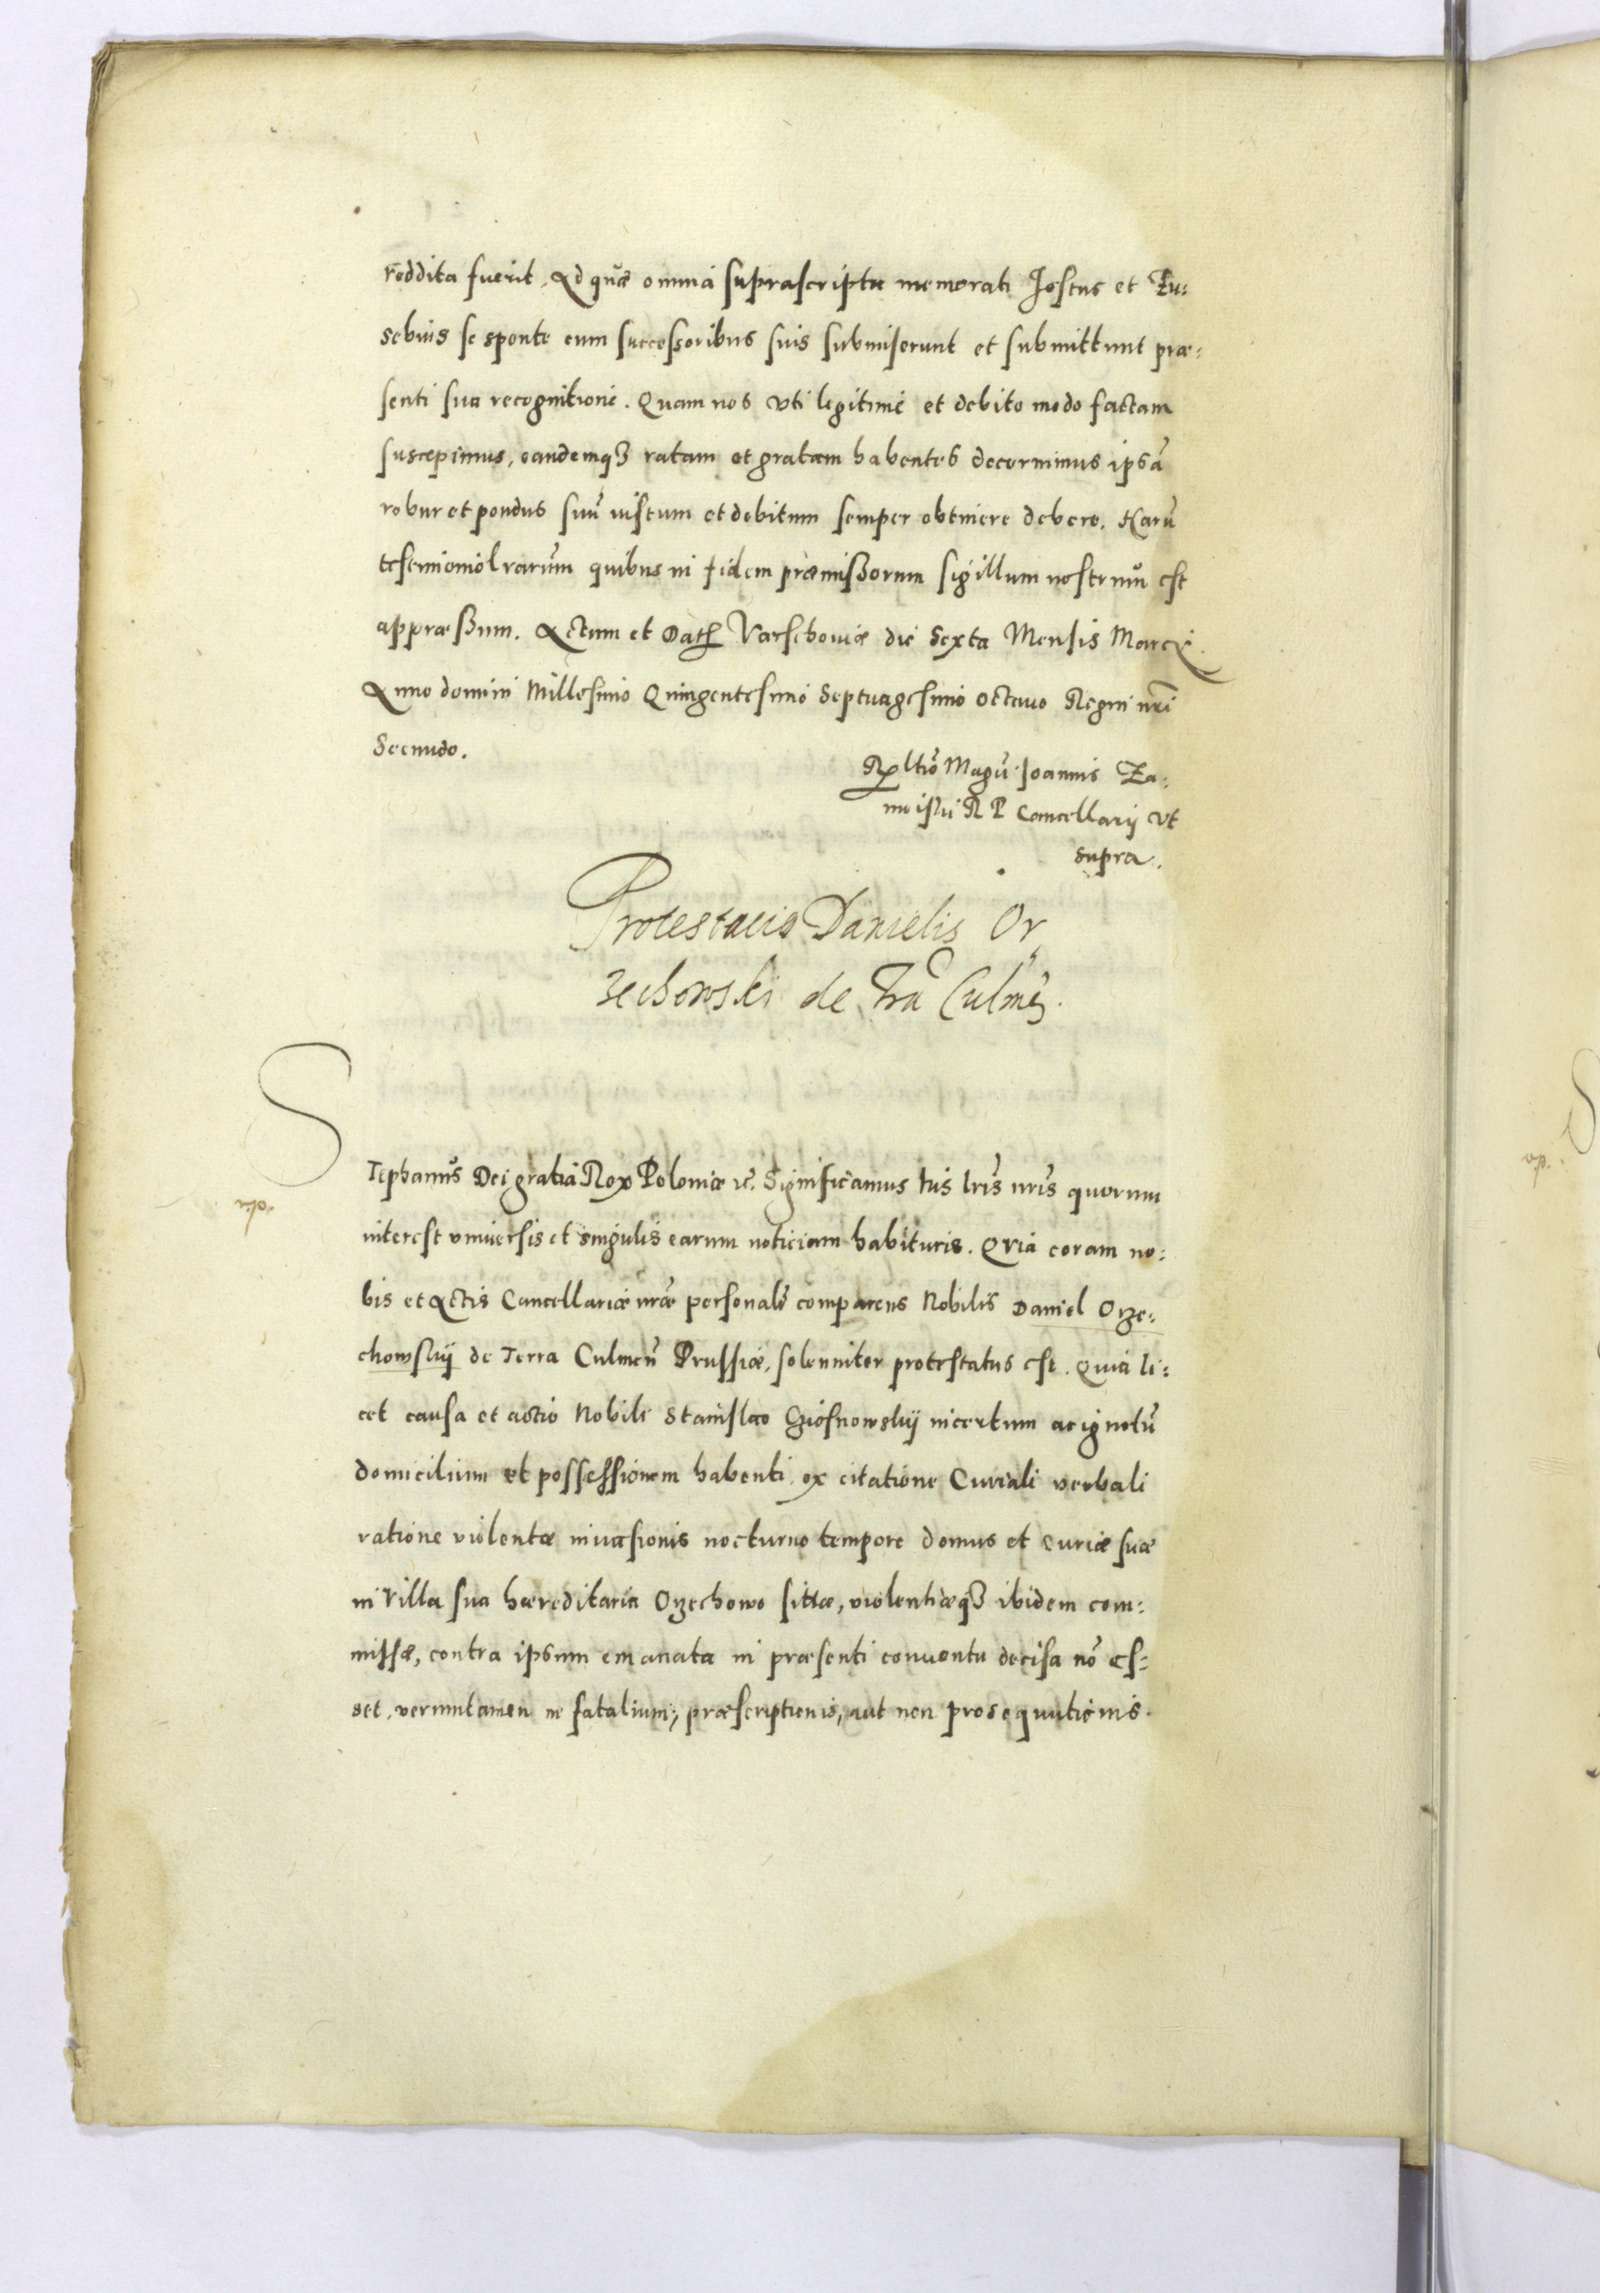 reddita fuerit. Ad quæ omnia suprascripta memorati Jostus et Eu:
sebius se sponte cum successoribus suis submiserunt et submittunt præ:
senti sua recognitione. Quam nos vti legitime et debito modo factam
suscepimus, eandemq3 ratam et gratam habentes decernimus ipsã
robur et pondus suũ iustum et debitum semper obtinere debere. Harũ
testimonio lrarũm quibus in fidem præmissorum sigillum nostrum̃ est
appræssum. Actum et Dat Varschouiæ die Sexta Mensis Marcÿ.
Anno domini Millesimo Quingentesimo Septuagesimo octauo Regni nrĩ
Secundo.
Rltiõ Magci Joannis Za:
moiskii R P Cancellarij vt
supra.
Protestacio Danielis Or
zechowski de Tra Culmen̄.
Stephanus Dei gratia Rex Poloniæ &c. Significamus his lrĩs nrĩs quorum
interest vniuersis et singulis earum noticiam habituris. Quia coram no:
bis et Actis Cancellariæ nræ personalr̃ comparens Nobilis Daniel Orze:
chowskij de Terra Culmeñ Prussiæ, solenniter protestatus est. Quia li:
cet causa et actio Nobili Stanislao incertum ac ignotũ
domicilium et possessionem habenti. ex citatione Curiali verbali
ratione violentæ inuasionis nocturno tempore domus et curiæ suæ
in villa sua hæreditaria Orzechowo sittæ, violentiæq3 ibidem com:
missæ, contra ipsum emanata in præsenti conuentu decisa nõ es:
set. veruntamen ne fatalium, præscriptionis, aut non prosequutionis.